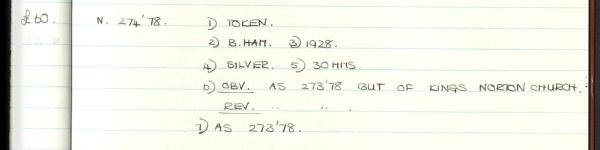 £60. N. 274'78. 1) TOKEN.
2) B.HAM. 3) 1928.
4) SILVER. 5) 30 MMS.
6) OBV. AS 273'78 BUT OF KINGS NORTON CHURCH.
REV. " " .
7) AS 273'78.